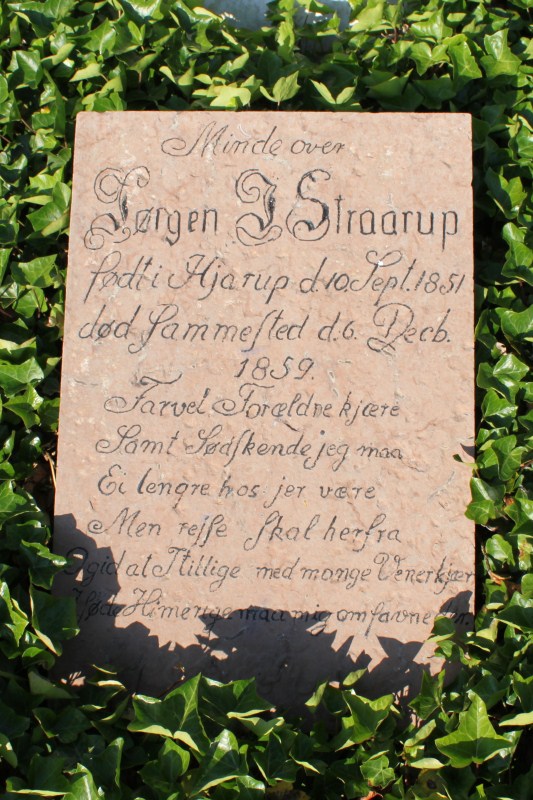 Minde over
Jørgen J Straarup
født i Hjarup d. 10. Sept. 1851
død Sammested d. 6. Decb.
1859.
Farvel Forældre kjære
Samt Sødskende jeg maa
Ei lengre hos jer være
Men rejse skal herfra
O gid at I tillige med mange Vener kjær
I Himerige maa mig omfavne